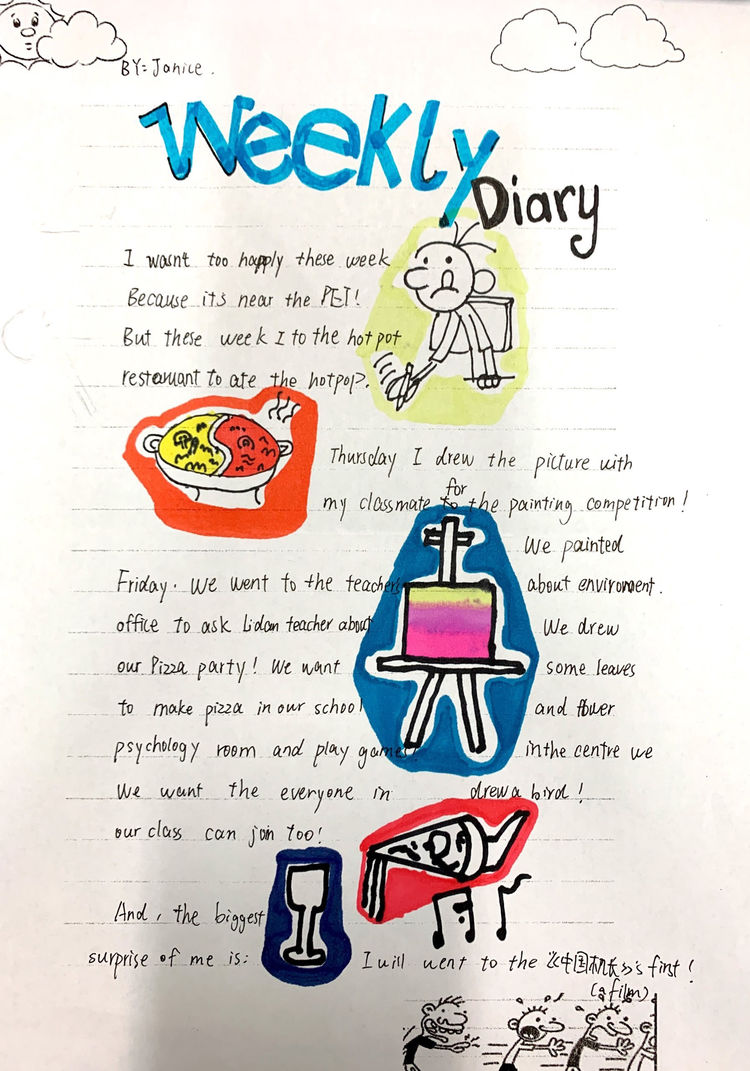 BY: Janice.
Weekly
Diary
I wasn't too happly these week
Because it's near the PET!
But these week I to the hot pot
restaurant to ate the hotpop.
Thursday I drew the picture with
my classmate for the painting competition!
We painted
about enviroment.
We drew
some leaves
and flower
in the centre we
drew a bird!
Friday. We went to the teacher's
office to ask Lidan teacher about
our Pizza party! We want
to make pizza in our school
psychology room and play games!
We want the everyone in
our class can join too!
And, the biggest
surprise of me is:
I will went to the 《中国机长》's first!
(a film)